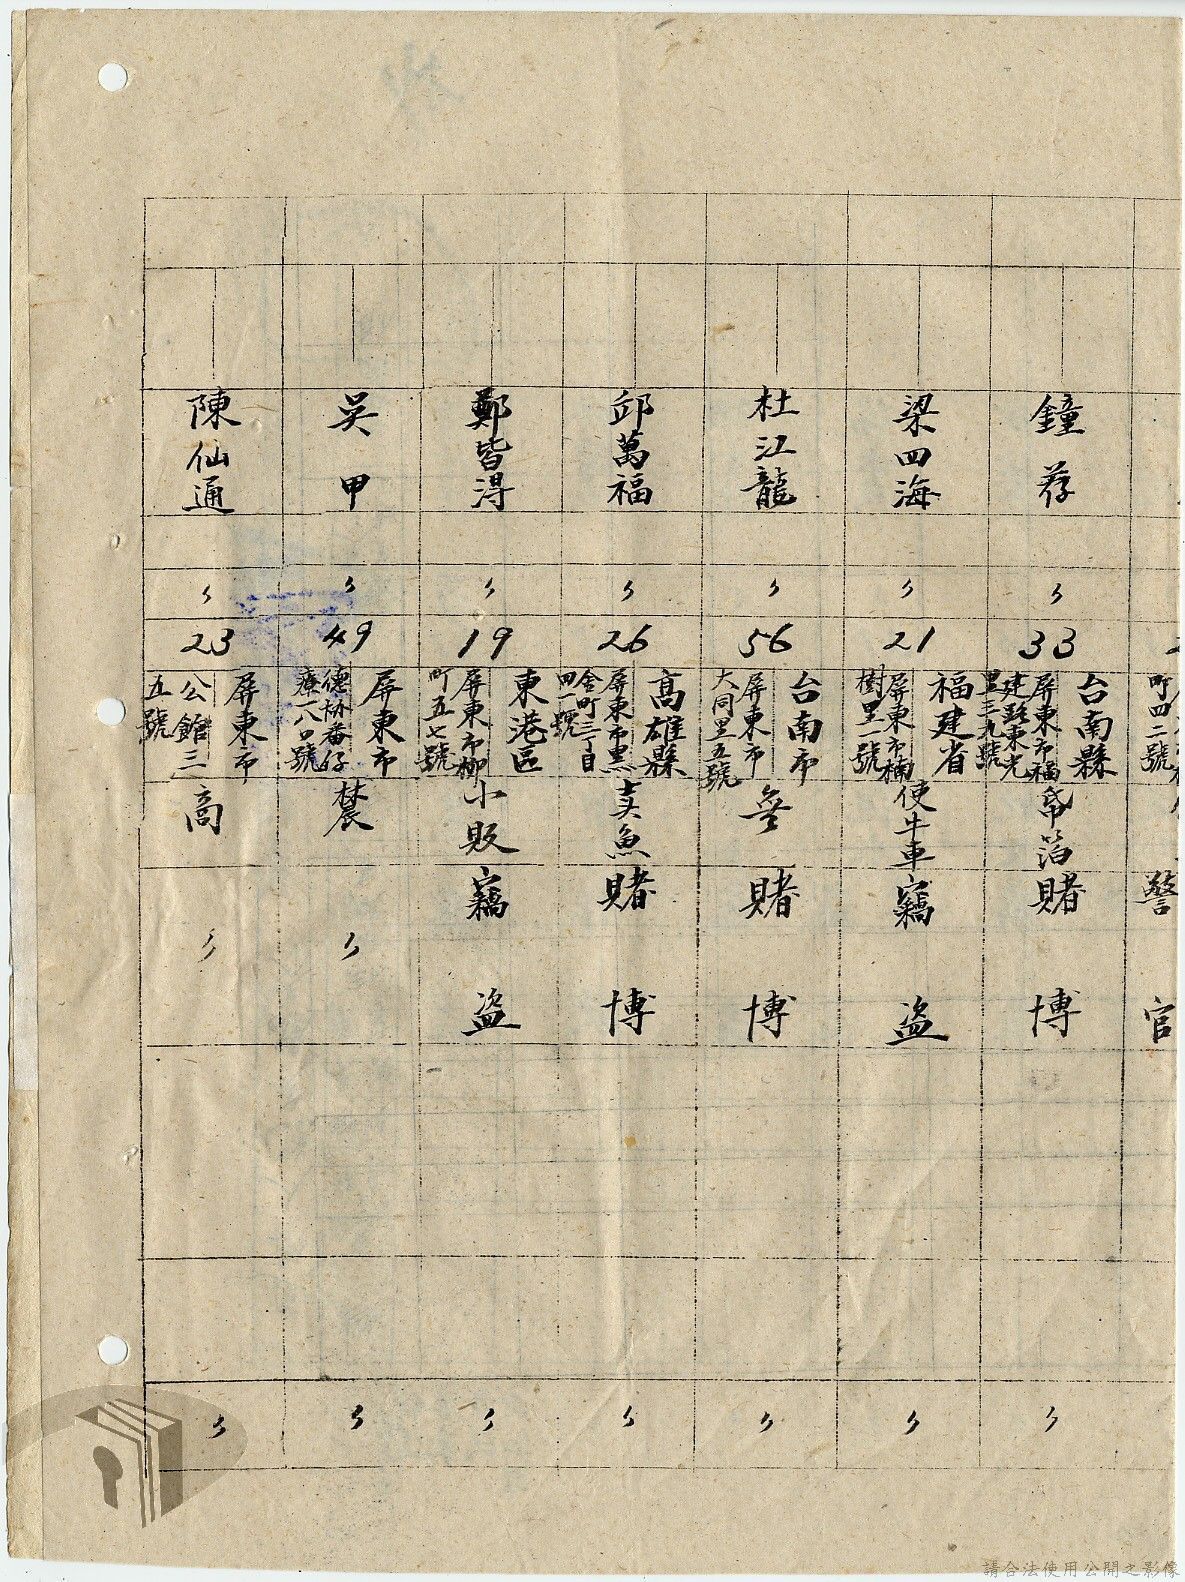 町四二號
警官
鐘荐
〃
33
台南縣
屏東市福建路東光里三九號
帋箔
賭博
〃
梁四海
〃
21
福建省
屏東市楠樹里一號
使牛車
竊盜
〃
杜江龍
〃
56
台南市
屏東市大同里五號
無
賭博
〃
邱萬福
〃
26
高雄縣
屏東市黑金町三丁目四一號
卖魚
賭博
〃
鄭皆淂
〃
19
東港區
屏東市柳町五七號
小販
竊盜
〃
吳甲
〃
49
屏東市
德林番仔寮一八〇號
農
〃
〃
陳仙通
〃
23
屏東市
公館三五號
商
〃
〃
請合法使用公開之影像